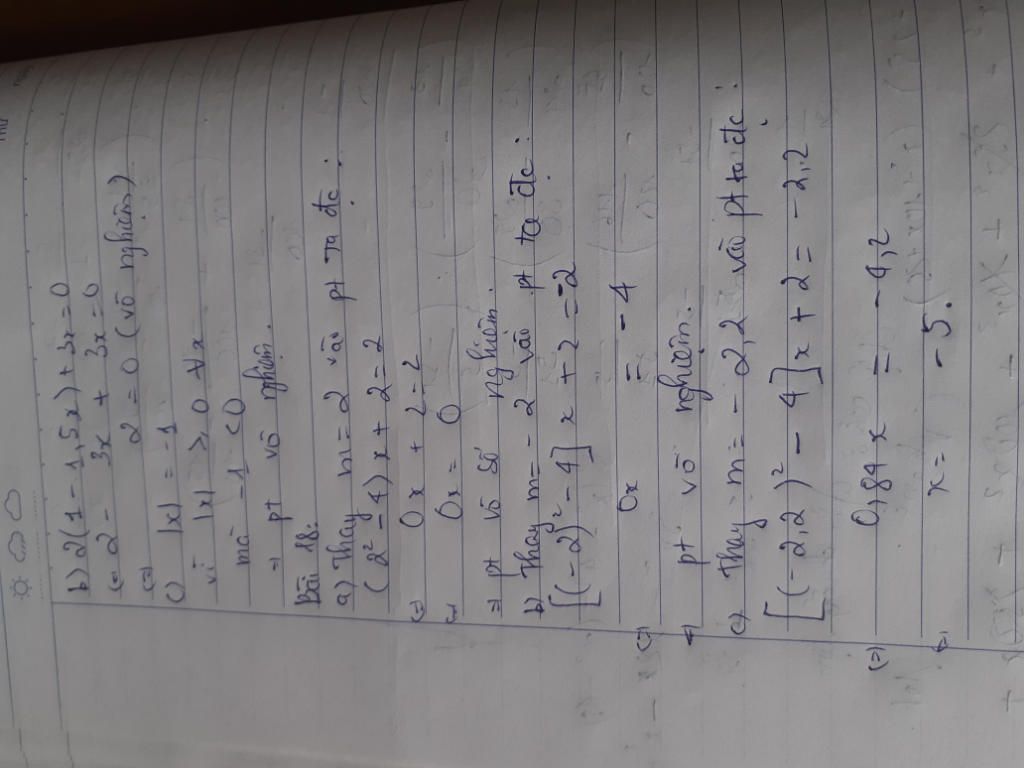 b) 2(1 - 1,5x) + 3x = 0
(=) 2 - 3x + 3x = 0
(=) 2 = 0 (vô nghiệm)
c) |x| = -1
vì |x| ≥ 0 ∀x
mà -1 < 0
=> pt vô nghiệm.
Bài 18:
a) Thay m = 2 vào pt ta đc:
(2² - 4)x + 2 = 2
(=) 0x + 2 = 2
(=) 0x = 0
=> pt vô số nghiệm.
b) Thay m = -2 vào pt ta đc:
[(-2)² - 4] x + 2 = -2
(=) 0x = -4
=) pt vô nghiệm.
c) Thay m = -2,2 vào pt ta đc:
[(-2,2)² - 4] x + 2 = -2,2
(=) 0,84 x = -4,2
(=) x = -5.